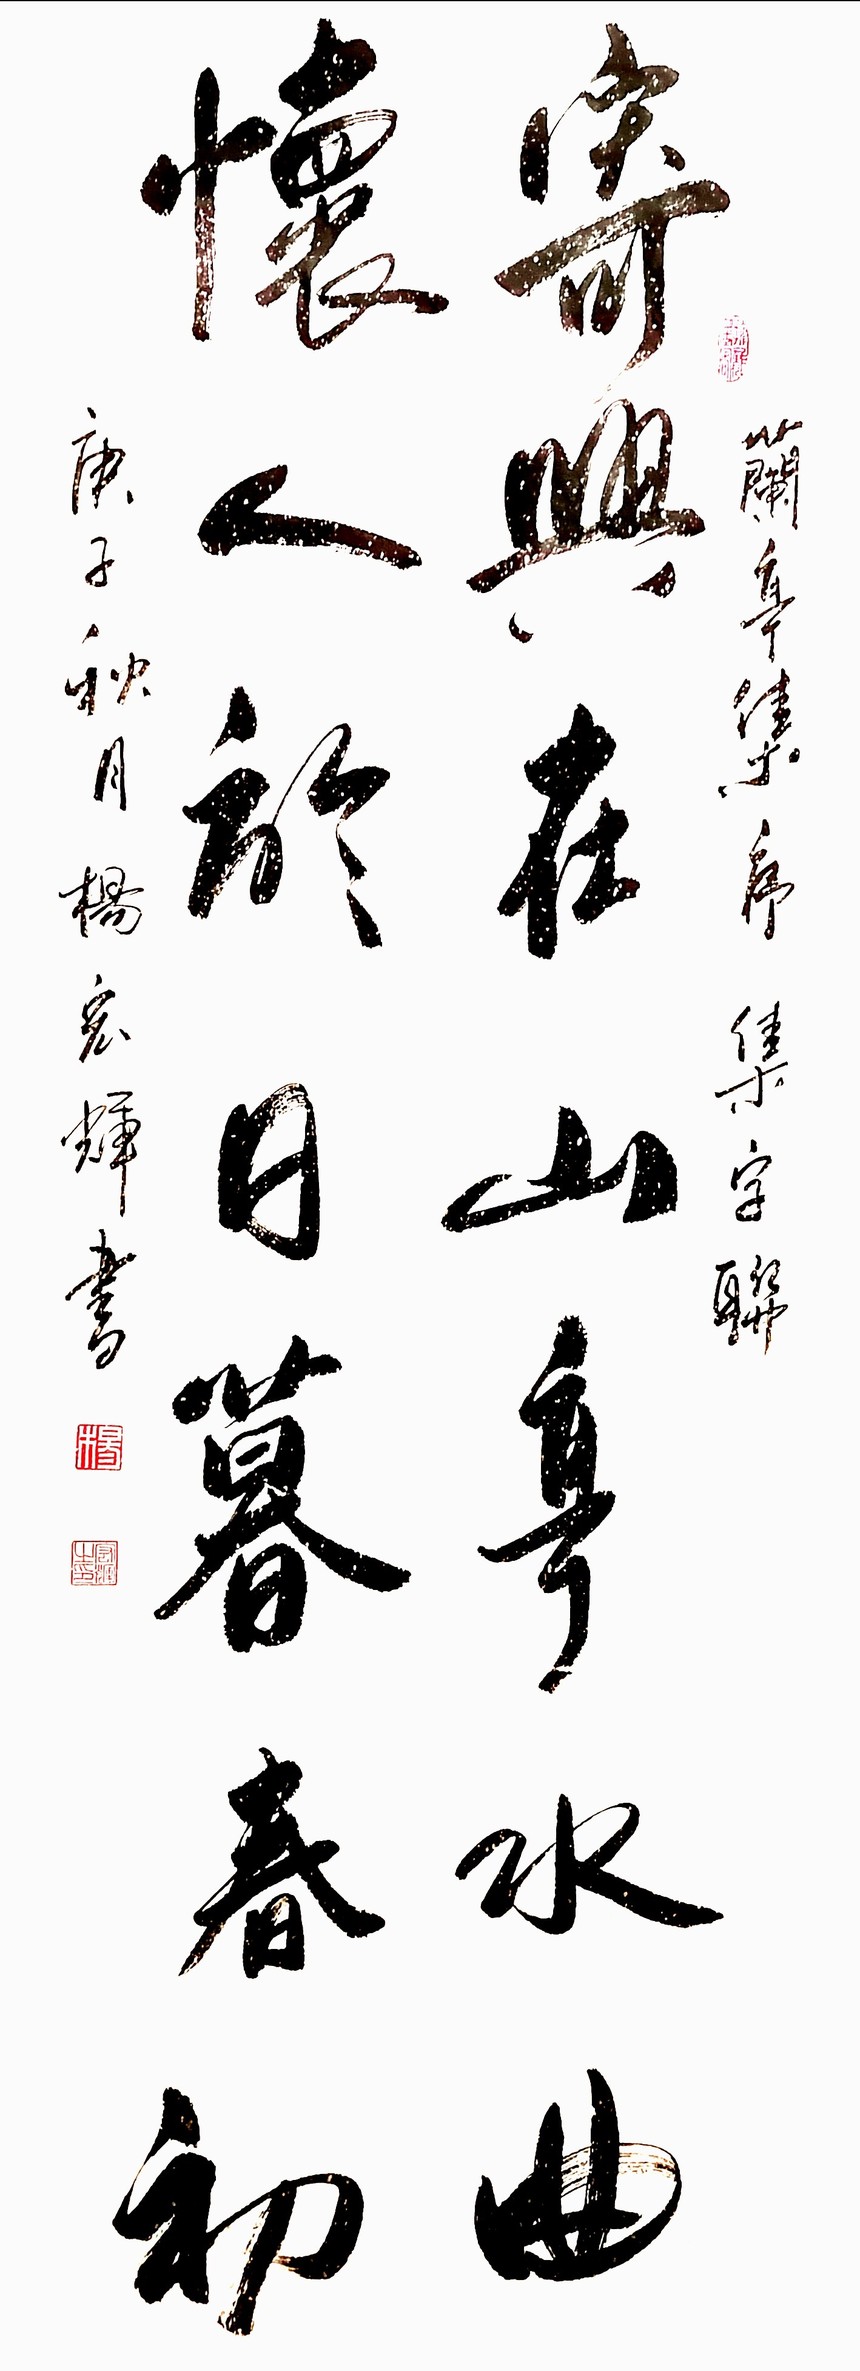 蘭亭集序 集字聯
寄興在山亭水曲
懷人於日暮春初
庚子秋月楊宏輝書
楊